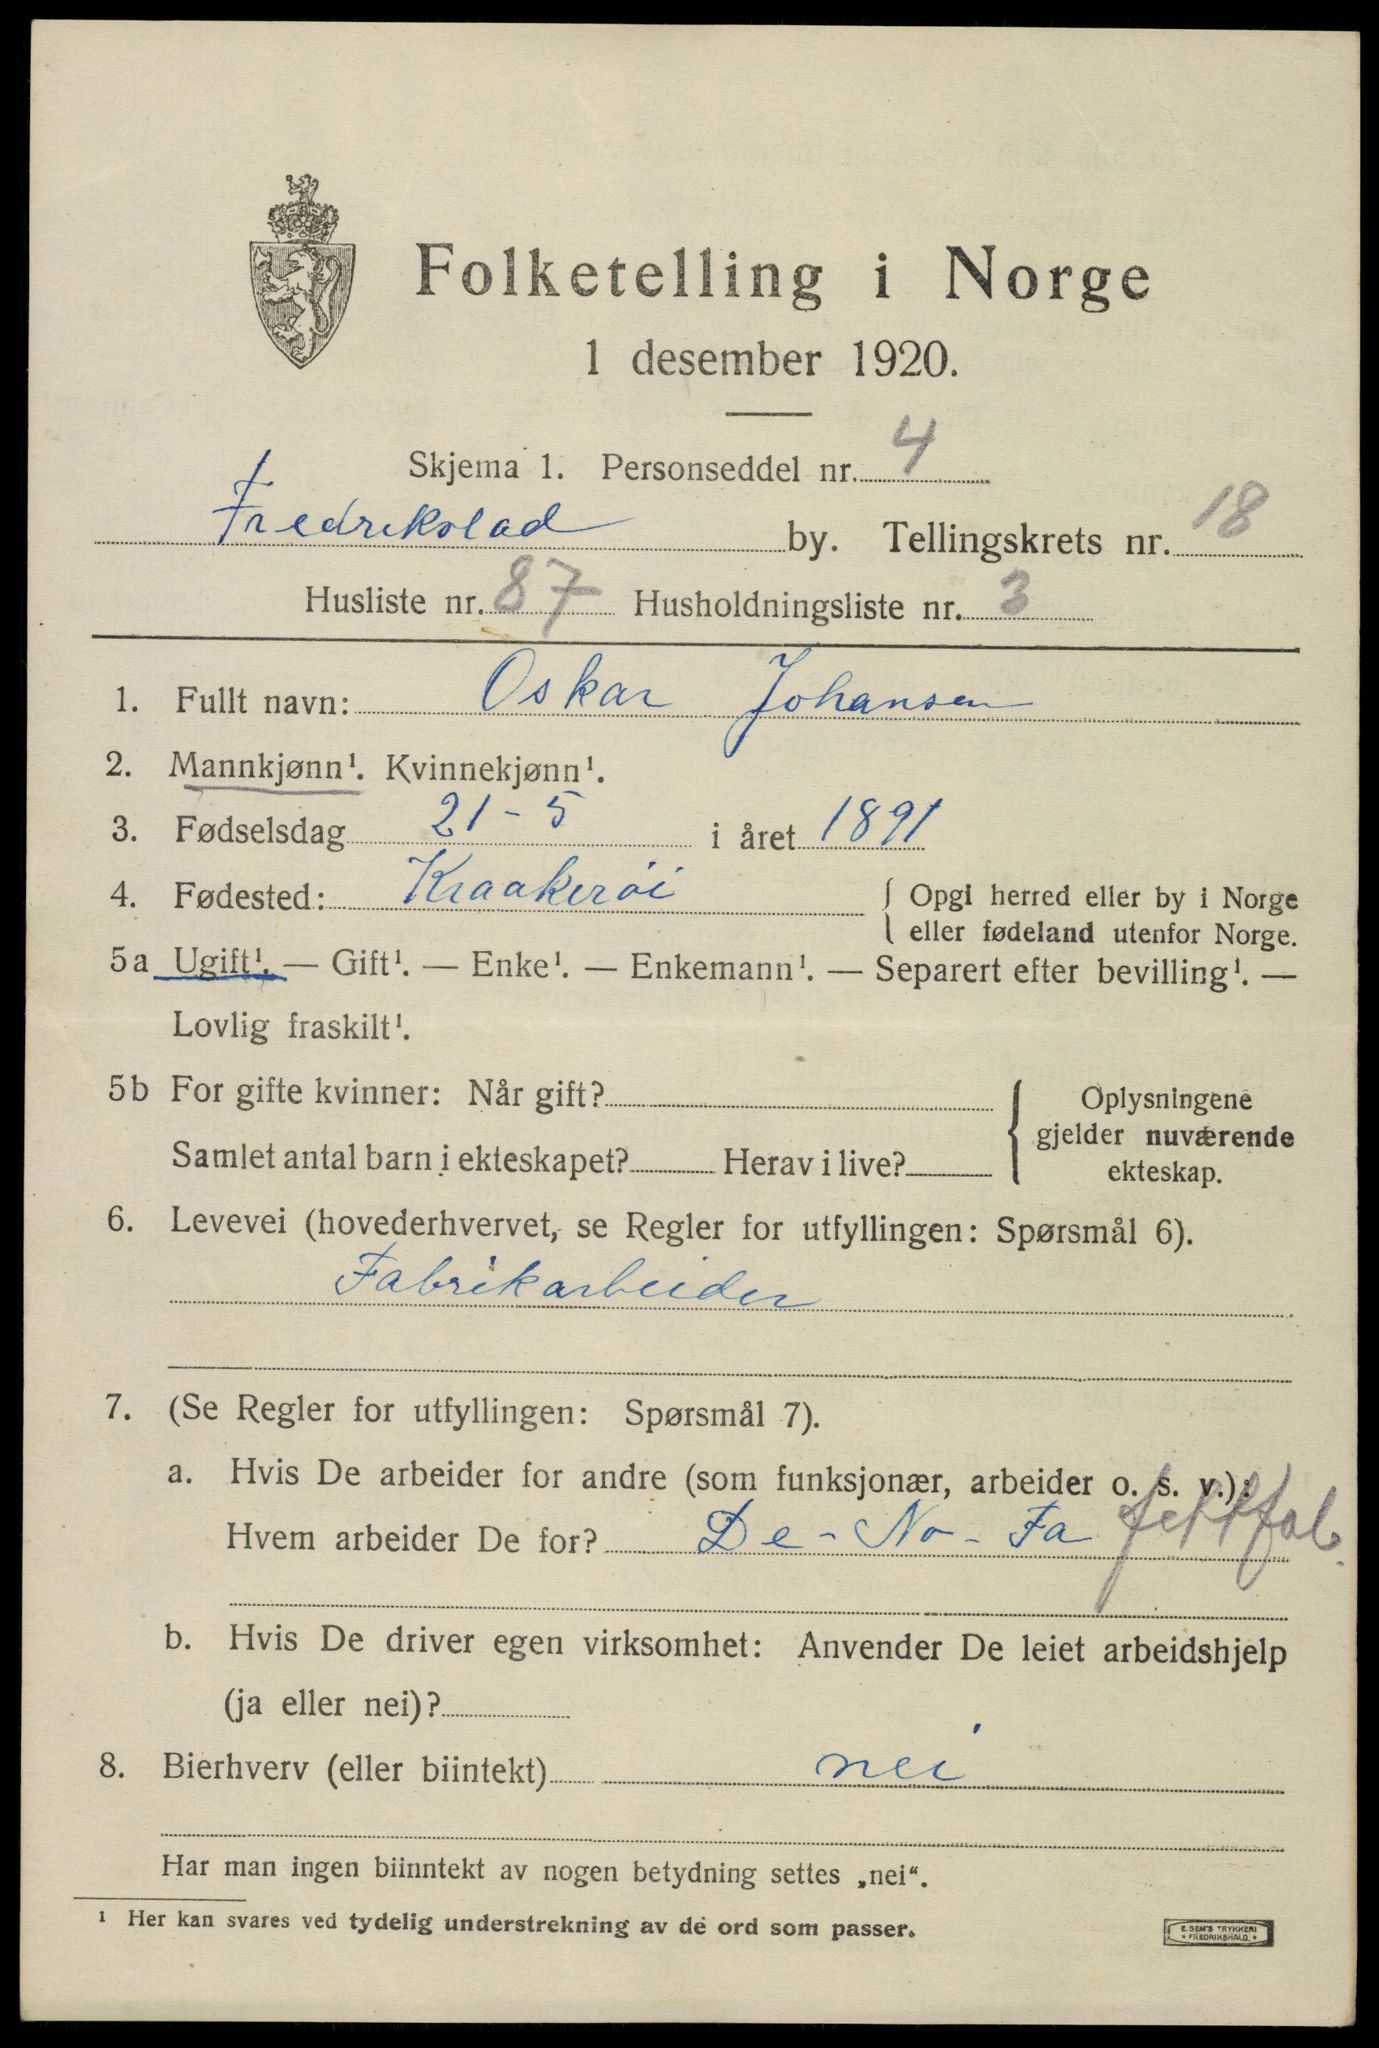 Folketelling i Norge
1 desember 1920.
Skjema 1. Personseddel nr. 4
Fredrikstad by. Tellingskrets nr. 18
Husliste nr. 87 Husholdningsliste nr. 3
1. Fullt navn: Oskar Johansen
2. Mannkjønn¹. Kvinnekjønn¹.
3. Fødselsdag 21-5 i året 1891
4. Fødested: Kraakerøi { Opgi herred eller by i Norge
eller fødeland utenfor Norge.
5a Ugift¹. — Gift¹. — Enke¹. — Enkemann¹. — Separert efter bevilling¹. —
Lovlig fraskilt¹.
5b For gifte kvinner: Når gift? { Oplysningene
gjelder nuværende
Samlet antal barn i ekteskapet? Herav i live?
ekteskap.
6. Levevei (hovederhvervet, se Regler for utfyllingen: Spørsmål 6).
Fabrikarbeider
7. (Se Regler for utfyllingen: Spørsmål 7).
a. Hvis De arbeider for andre (som funksjonær, arbeider o. s. v.):
Hvem arbeider De for? De-No-Fa fettfab.
b. Hvis De driver egen virksomhet: Anvender De leiet arbeidshjelp
(ja eller nei)?
8. Bierhverv (eller biintekt) nei
Har man ingen biinntekt av nogen betydning settes „nei“.
¹ Her kan svares ved tydelig understrekning av de ord som passer.
E. SEM'S TRYKKERI
* FREDRIKSHALD *